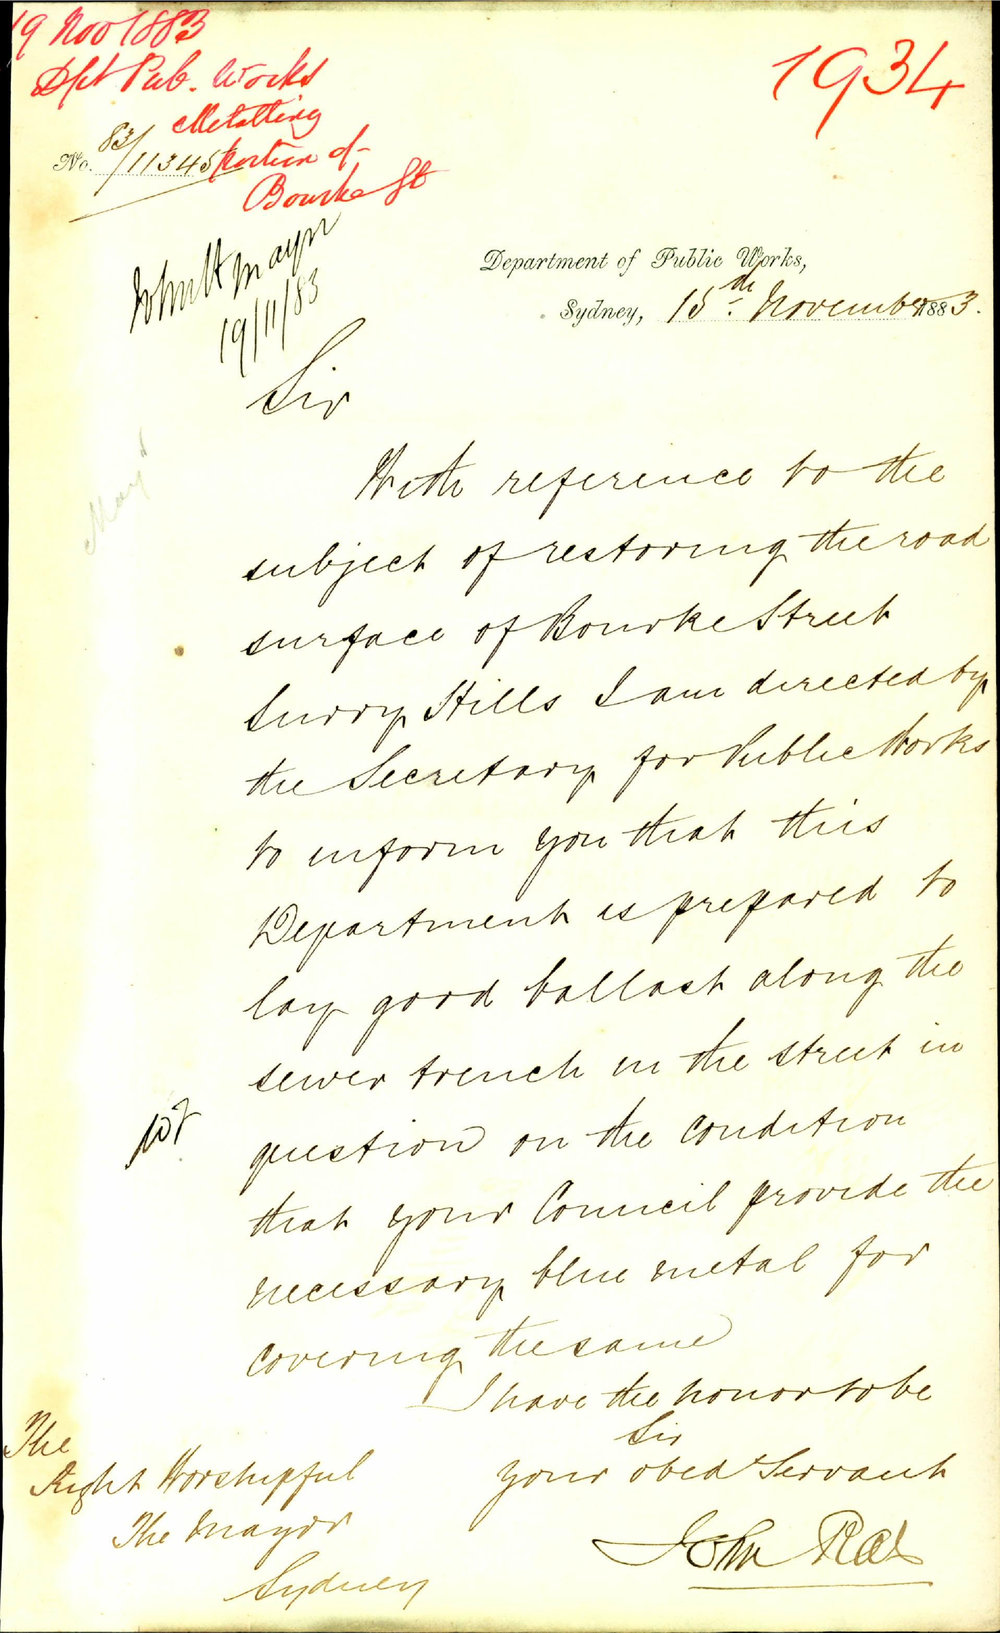 19 Nov 1883
Dpt Pub. Works
Metalling
portion of
Bourke St
1934
No. 83/11345
John H Mayn
19/11/83
Department of Public Works,
Sydney, 15th November 1883.
Sir
With reference to the
subject of restoring the road
surface of Bourke Street
Surry Hills I am directed by
the Secretary for Public Works
to inform you that this
Department is prepared to
lay good ballast along the
sewer trench in the street in
question on the condition
that your Council provide the
necessary blue metal for
covering the same
I have the honor to be
Sir
your obed Servant
John Rae
The
Right Worshipful
The Mayor
Sydney